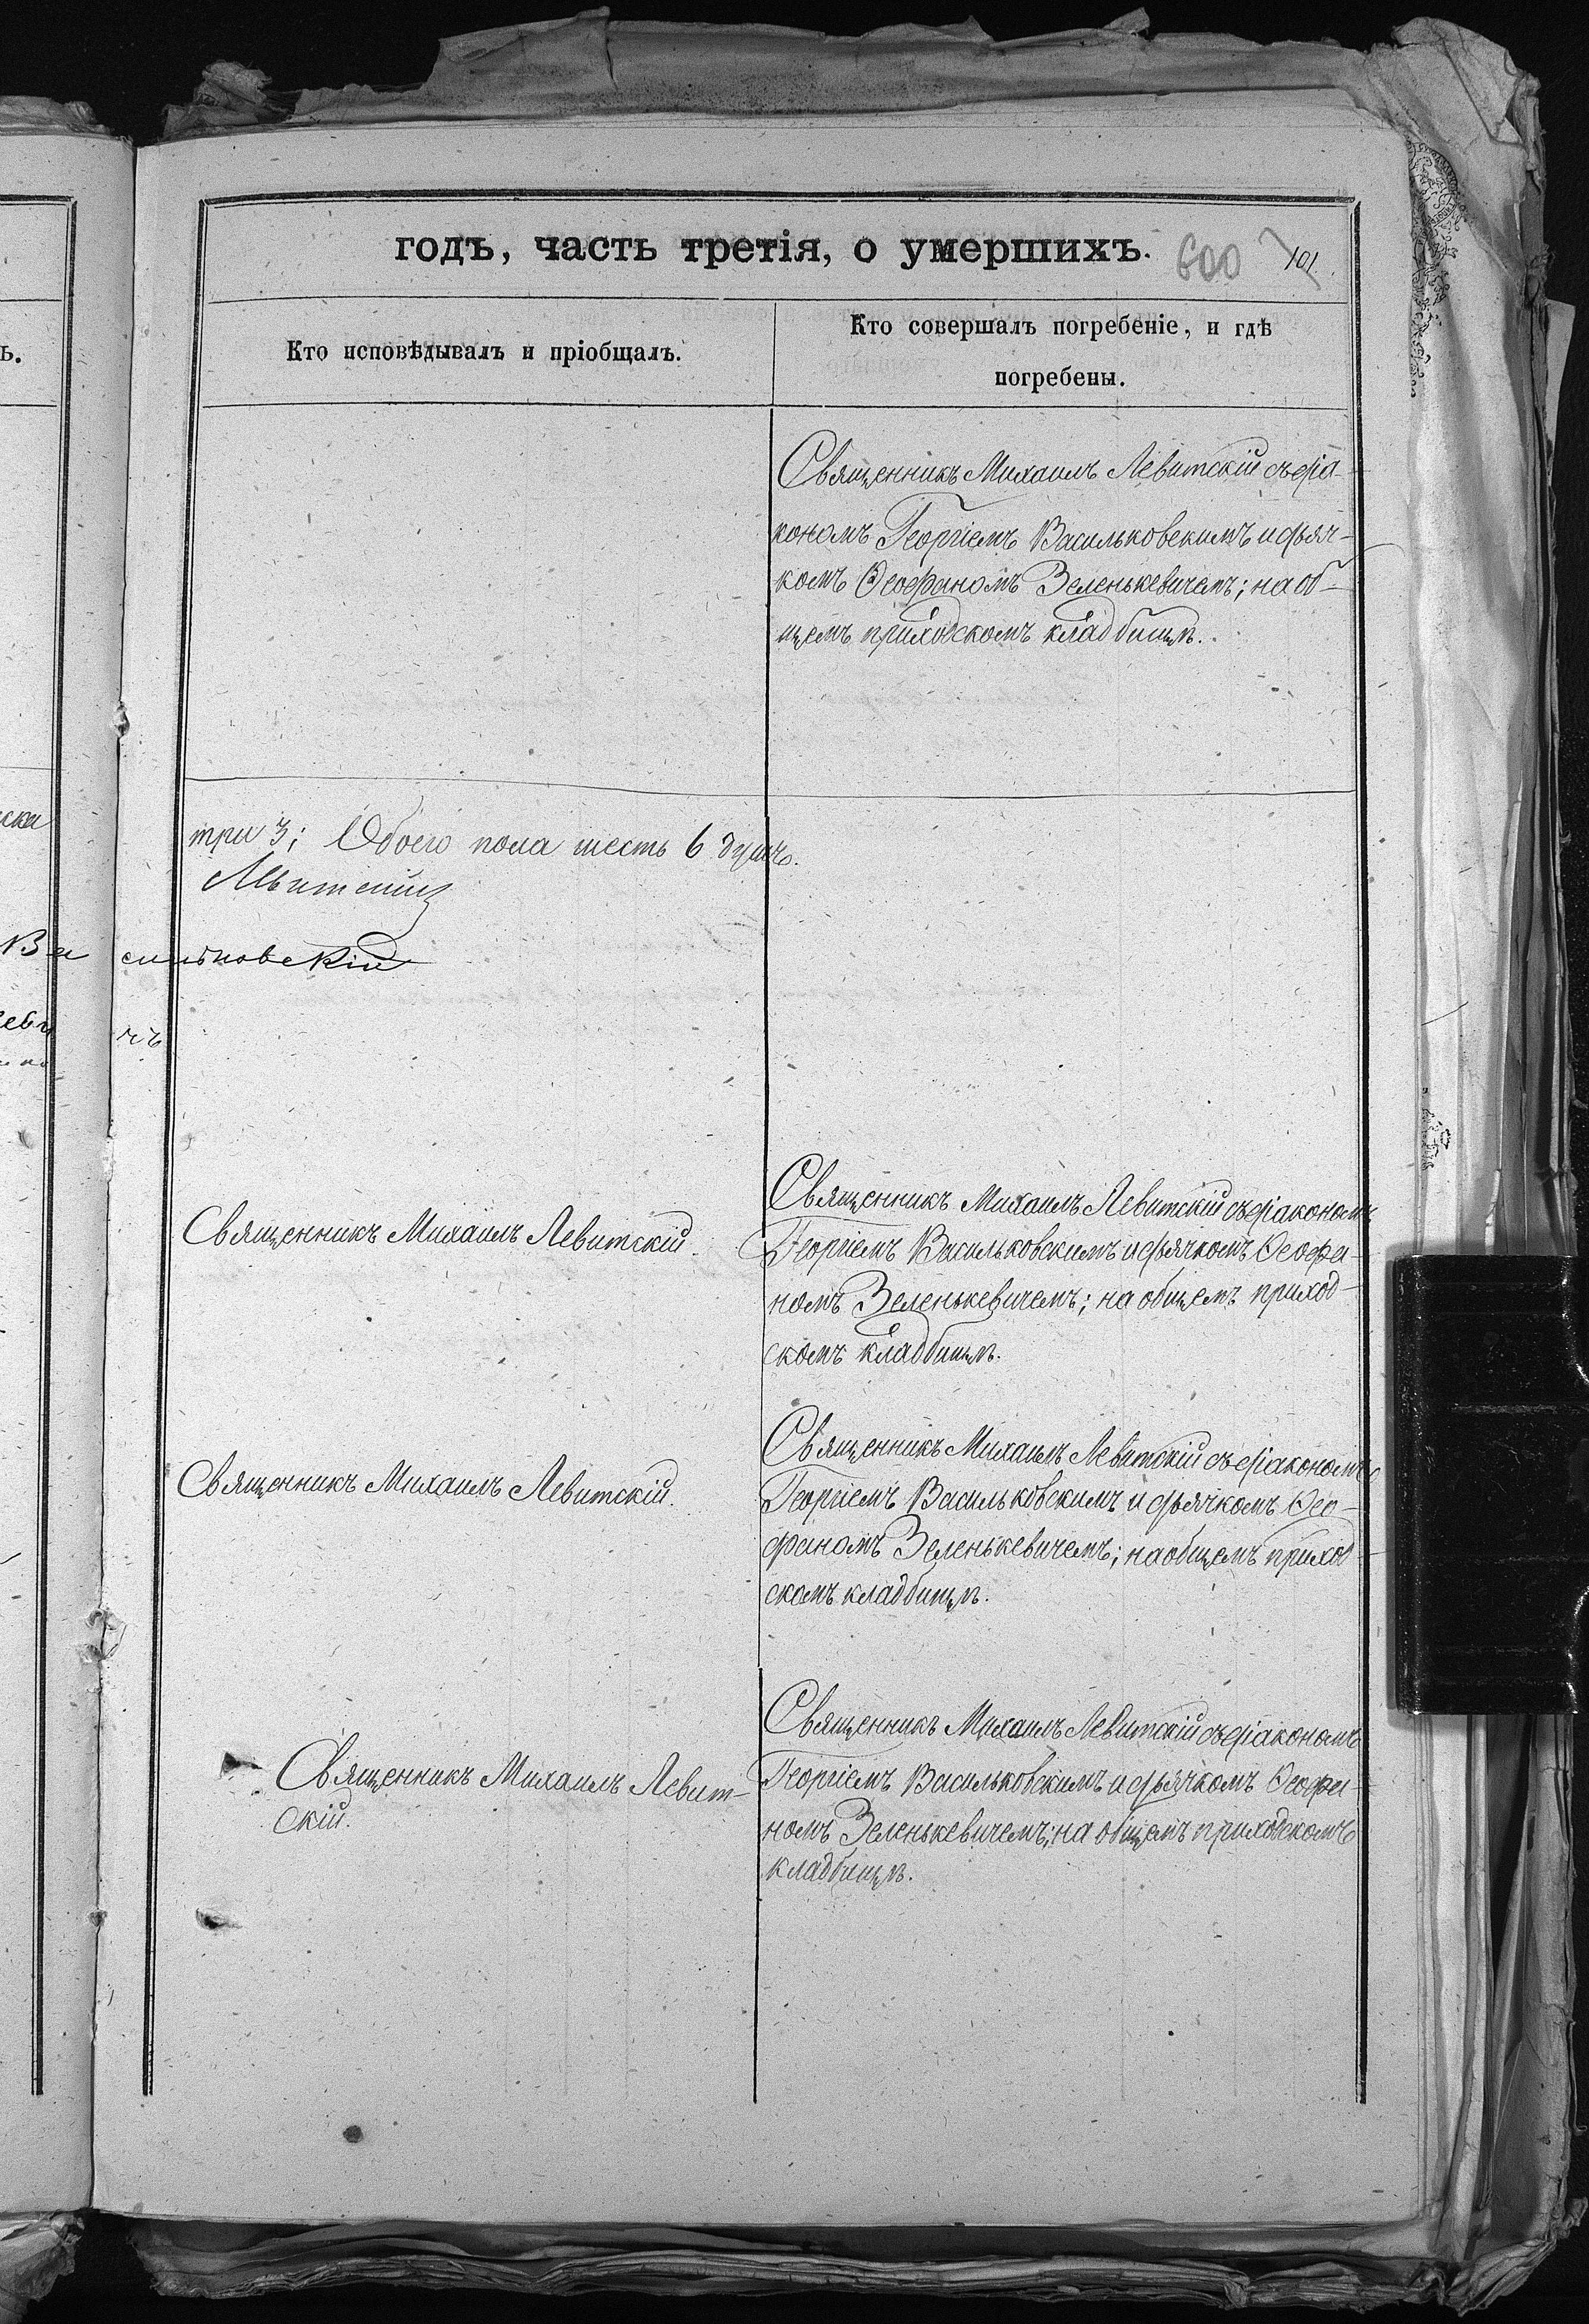 годъ, часть третія, о умершихъ.
600
101.
Кто исповѣдывалъ и пріобщалъ.
Кто совершалъ погребеніе, и гдѣ
погребены.
Священникъ Михаилъ Левитскій съ діа-
кономъ Георгіемъ Васильковскимъ и дьяч-
комъ Ѳеофаномъ Зеленькевичемъ; на об-
щемъ приходскомъ кладбищѣ.
три 3; Обоего пола шесть 6 душъ.
Левитскій
Васильковскій
чъ
Священникъ Михаилъ Левитскій.
Священникъ Михаилъ Левитскій съ діакономъ
Георгіемъ Васильковскимъ и дьячкомъ Ѳеофа-
номъ Зеленькевичемъ; на общемъ приход-
скомъ кладбищѣ.
Священникъ Михаилъ Левитскій.
Священникъ Михаилъ Левитскій съ діакономъ
Георгіемъ Васильковскимъ и дьячкомъ Ѳео-
фаномъ Зеленькевичемъ; на общемъ приход-
скомъ кладбищѣ.
Священникъ Михаилъ Левит-
скій.
Священникъ Михаилъ Левитскій съ діакономъ
Георгіемъ Васильковскимъ и дьячкомъ Ѳеофа-
номъ Зеленькевичемъ; на общемъ приходскомъ
кладбищѣ.